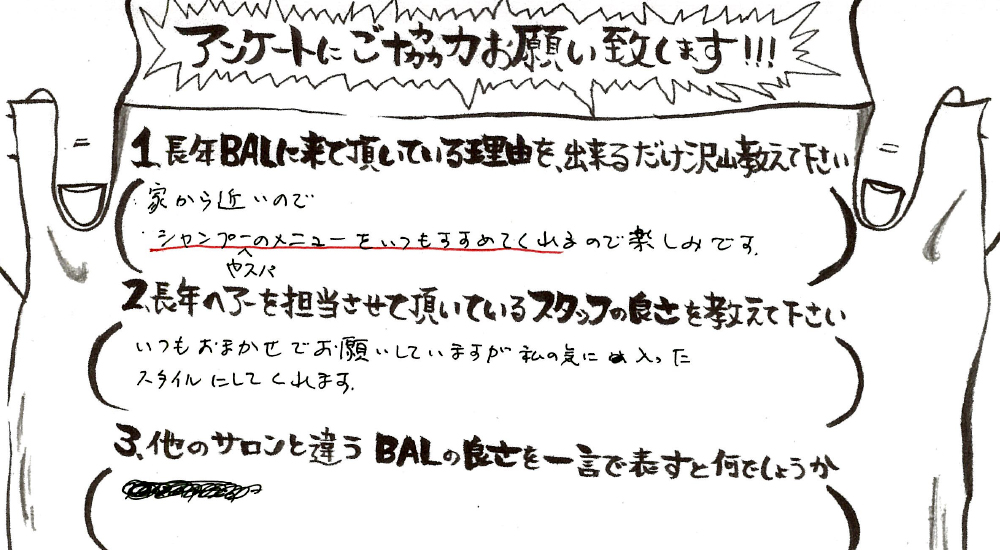 アンケートにご協力お願い致します!!!
1.長年BALに来て頂いている理由を、出来るだけ沢山教えて下さい
家から近いので
シャンプーのメニューをいつもすすめてくれるので楽しみです。
やスパ
2.長年ヘアーを担当させて頂いているスタッフの良さを教えて下さい
いつもおまかせでお願いしていますが私の気に入った
スタイルにしてくれます。
3.他のサロンと違うBALの良さを一言で表すと何でしょうか